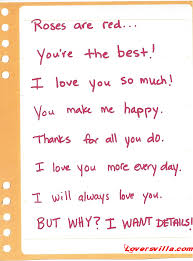 Roses are red...
You're the best!
I love you so much!
You make me happy.
Thanks for all you do.
I love you more every day.
I will always love you.
BUT WHY? I WANT DETAILS!
Loversvilla.com